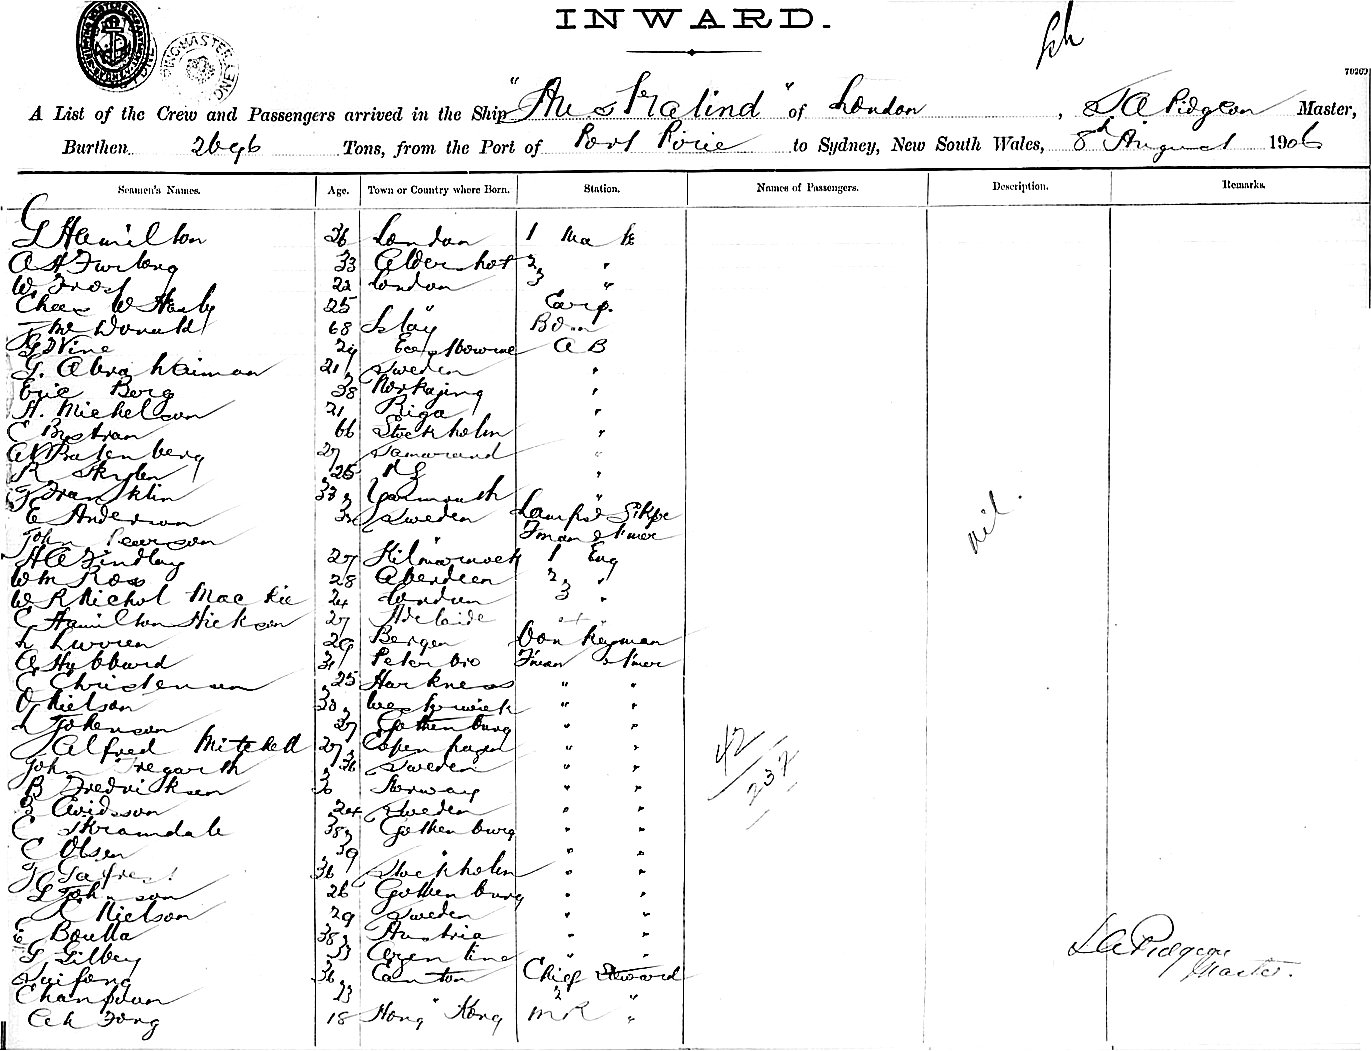 INWARD.
70262
A List of the Crew and Passengers arrived in the Ship " " of London, J A Pidgeon Master,
Burthen 2696 Tons, from the Port of Port Pirie to Sydney, New South Wales, 8th August 1906
Seamen's Names. Age. Town or Country where Born. Station. Names of Passengers. Description. Remarks.
G Hamilton 36 London 1 Mate
A H Furlong 33 Aldershot 2 "
W Frost 22 London 3 "
Chas W Hasly 25 " Carp.
McDonald 68 Islay Bosn
G Vine 29 Eastbourne A B
G. Abrahaimson 21 Sweden "
Eric Berg 38 Norkoping "
H. Michelson 21 Riga "
C Bystram 66 Stockholm "
27 "
R 25 "
G Franklin 33 Yarmouth "
E Anderson Sweden Lamps
John Pearson Fman & Tmer
H A Findlay 27 Kilmarnock 1 Eng
Wm Ross 28 Aberdeen 2 "
W R Nichol Mackie 24 London 3 "
C Hamilton Hickson 27 Adelaide 4 "
L 29 Bergen Donkeyman
A Hybbard 31 Peterboro Fman Tmer
C Christensen 25 Harkness " "
O Nielson 30 Westerwick " "
L Johenson 27 Gothenburg " "
Alfred Mitchell 27 Copenhagen " "
John Tregarth 36 Sweden " "
B Fredricksen Norway " "
Avidsson 24 Sweden " "
C Skramdale 38 Gothenburg " "
C Olsen 39 " " "
J 36 Stockholm " "
G Johnson 26 Gothenburg " "
K Nielson 29 Sweden " "
E Boulla 38 Austria " "
G Gilbey 33 Argentine " "
Suifong 36 Canton Chief Steward
23 " 2 "
Ah Fong 18 Hong Kong M R "
nil.
42
237
J A Pidgeon
Master.